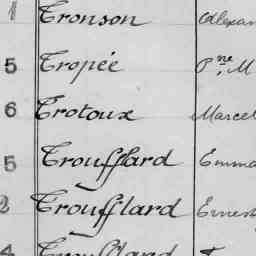 1 Tronson Alexan
5 Tropée Pne M
6 Trotoux Marcel
5 Troufflard Emma
2 Troufflard Ernest
4